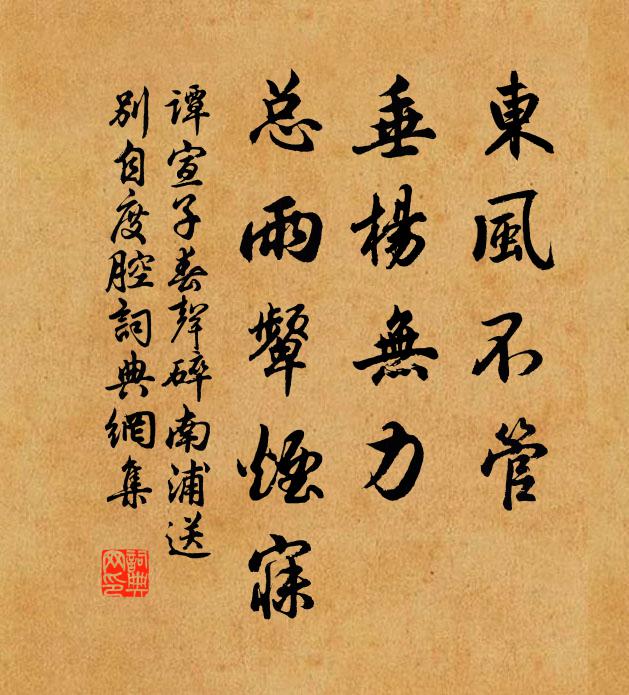 東風不管
垂楊無力
总雨顰煙寐
譚宣子春聲碎南浦送
別自度腔詞典網集
詞典網印